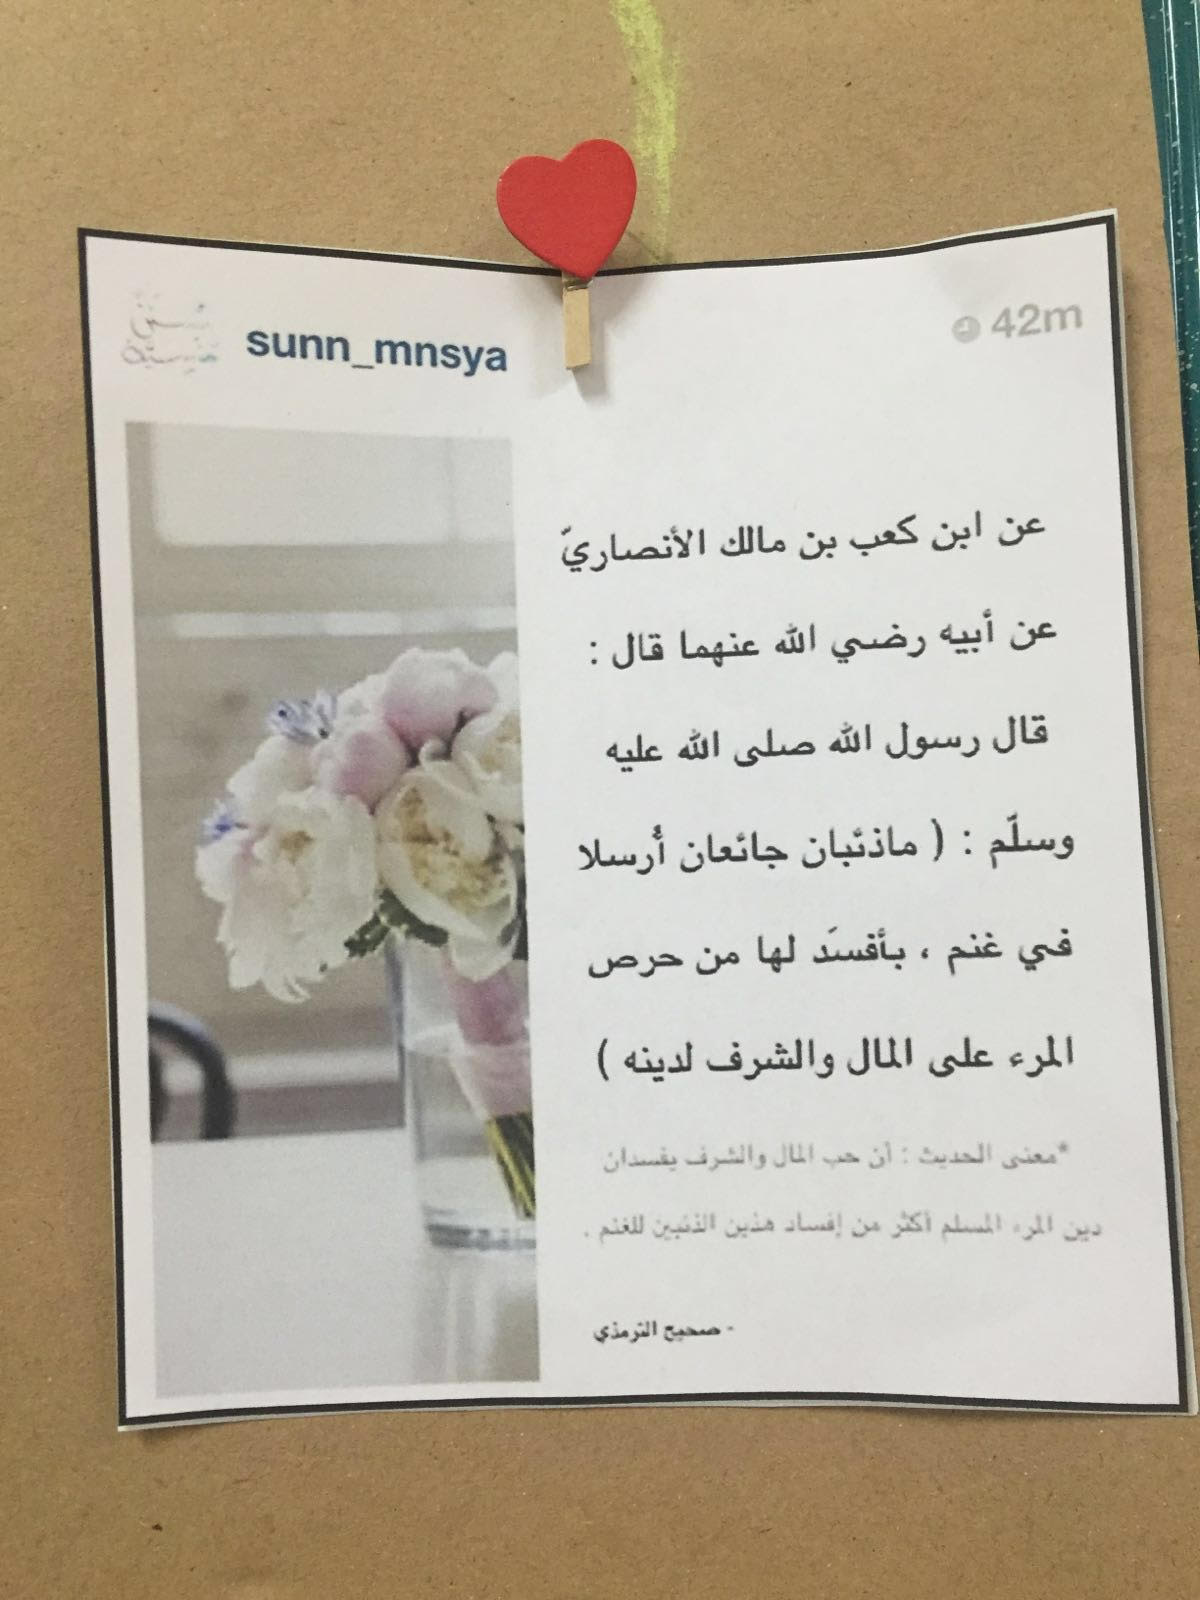 سنن منسية
sunn_mnsya
42m
عن ابن كعب بن مالك الأنصاريّ
عن أبيه رضي الله عنهما قال :
قال رسول الله صلى الله عليه
وسلّم : ( ماذئبان جائعان أُرسلا
في غنم ، بأفسَد لها من حرص
المرء على المال والشرف لدينه )
*معنى الحديث : أن حب المال والشرف يفسدان
دين المرء المسلم أكثر من إفساد هذين الذئبين للغنم .
- صحيح الترمذي